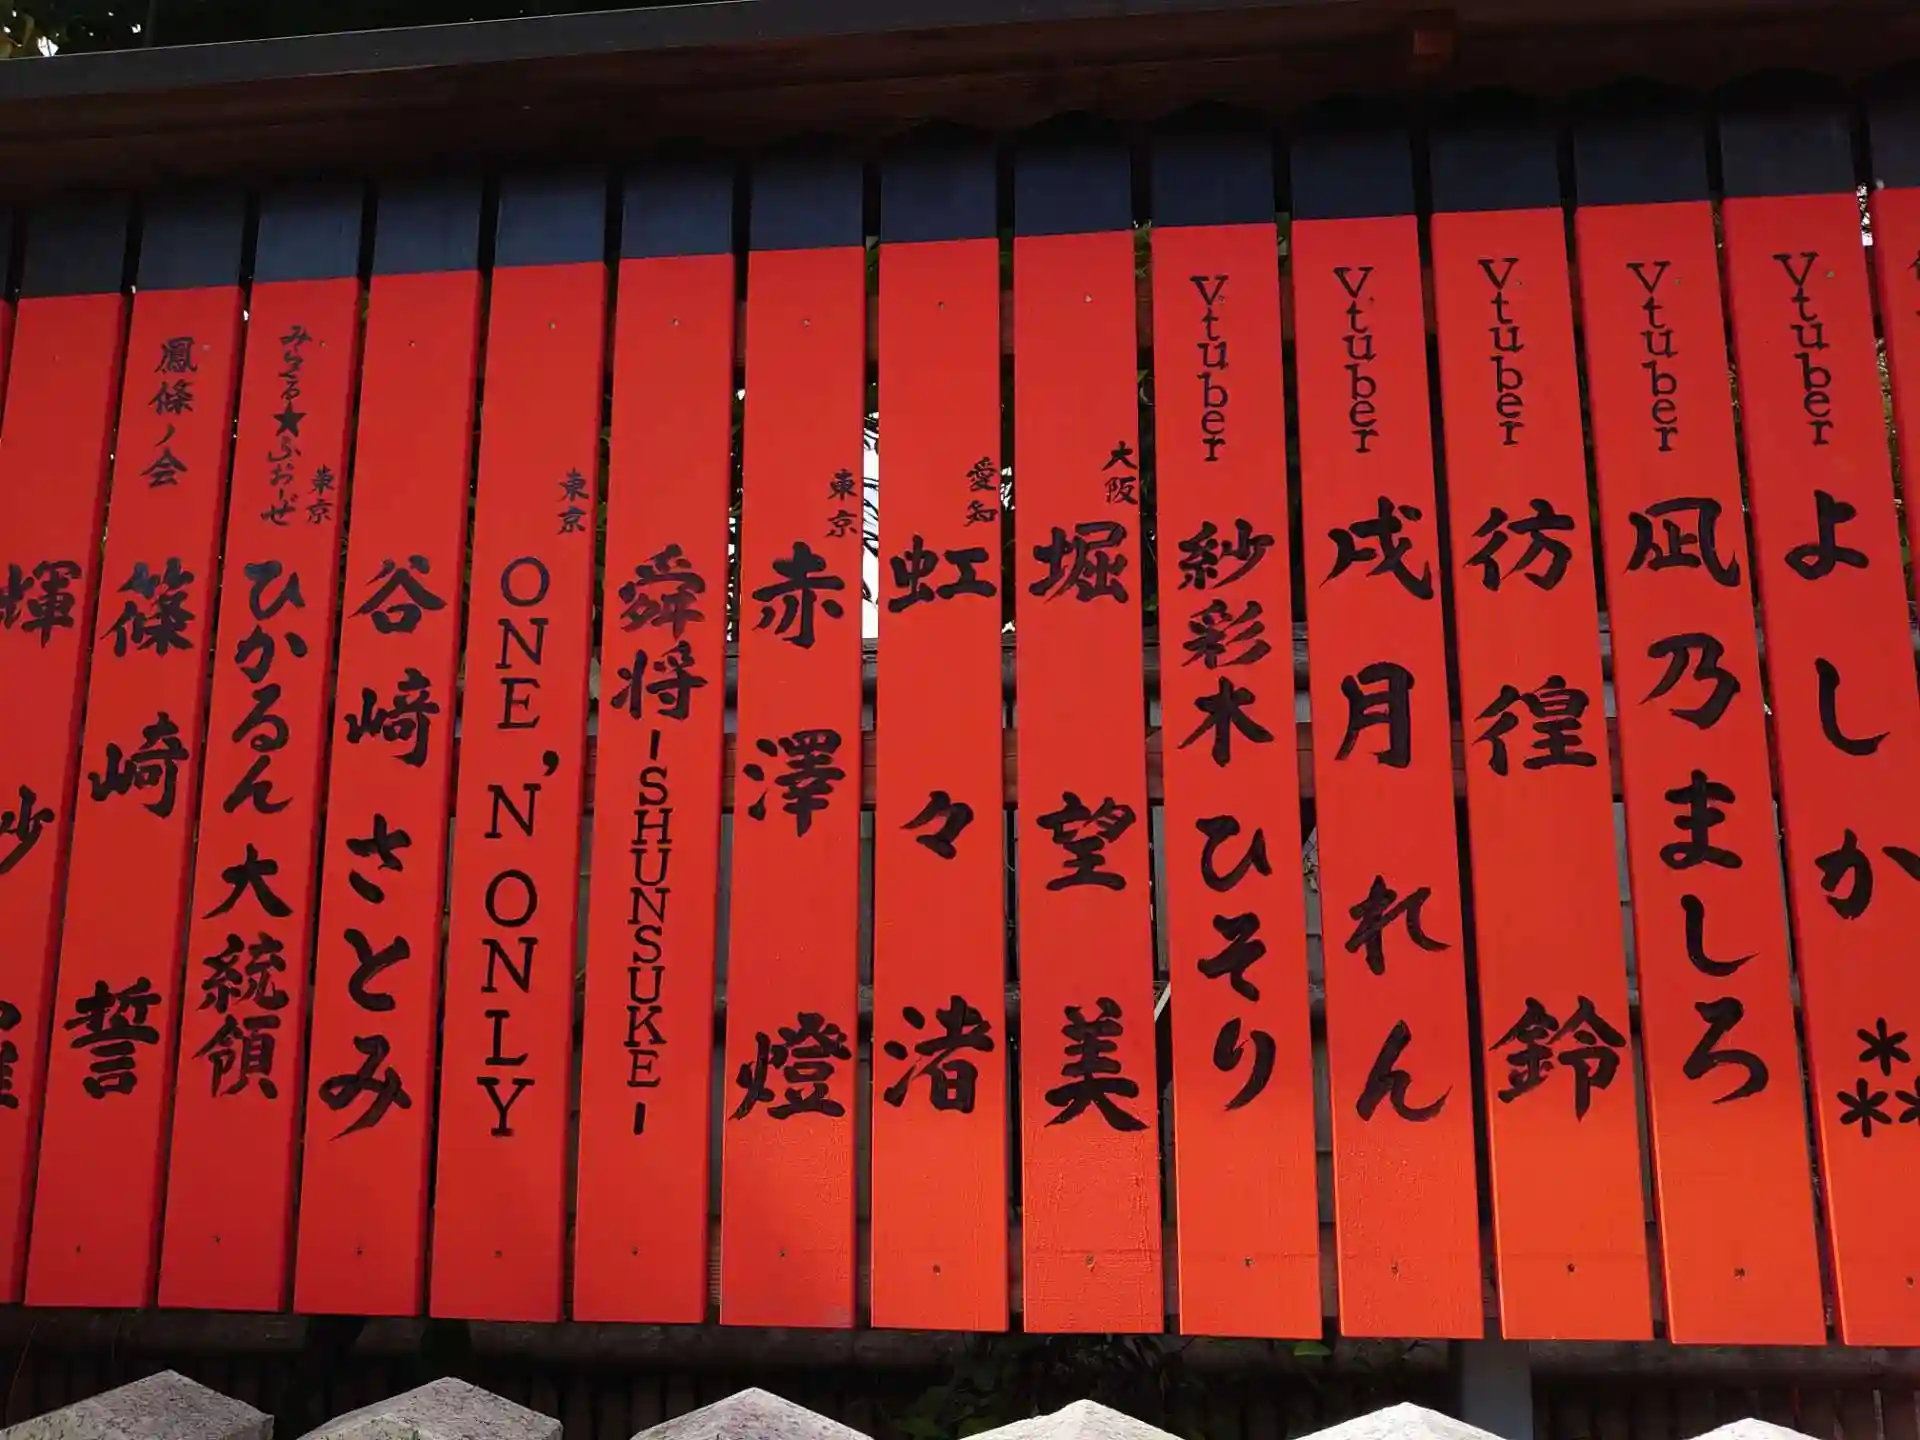 Vtuber よしか⁂
Vtuber 凪乃ましろ
Vtuber 彷徨 鈴
Vtuber 戌月 れん
Vtuber 紗彩木 ひそり
大阪 堀 望美
愛知 虹々渚
東京 赤澤 燈
舜将-SHUNSUKE-
東京 ONE N' ONLY
谷﨑 さとみ
みらくる★ふぉーぜ 東京 ひかるん大統領
鳳條ノ会 篠崎 誓
輝